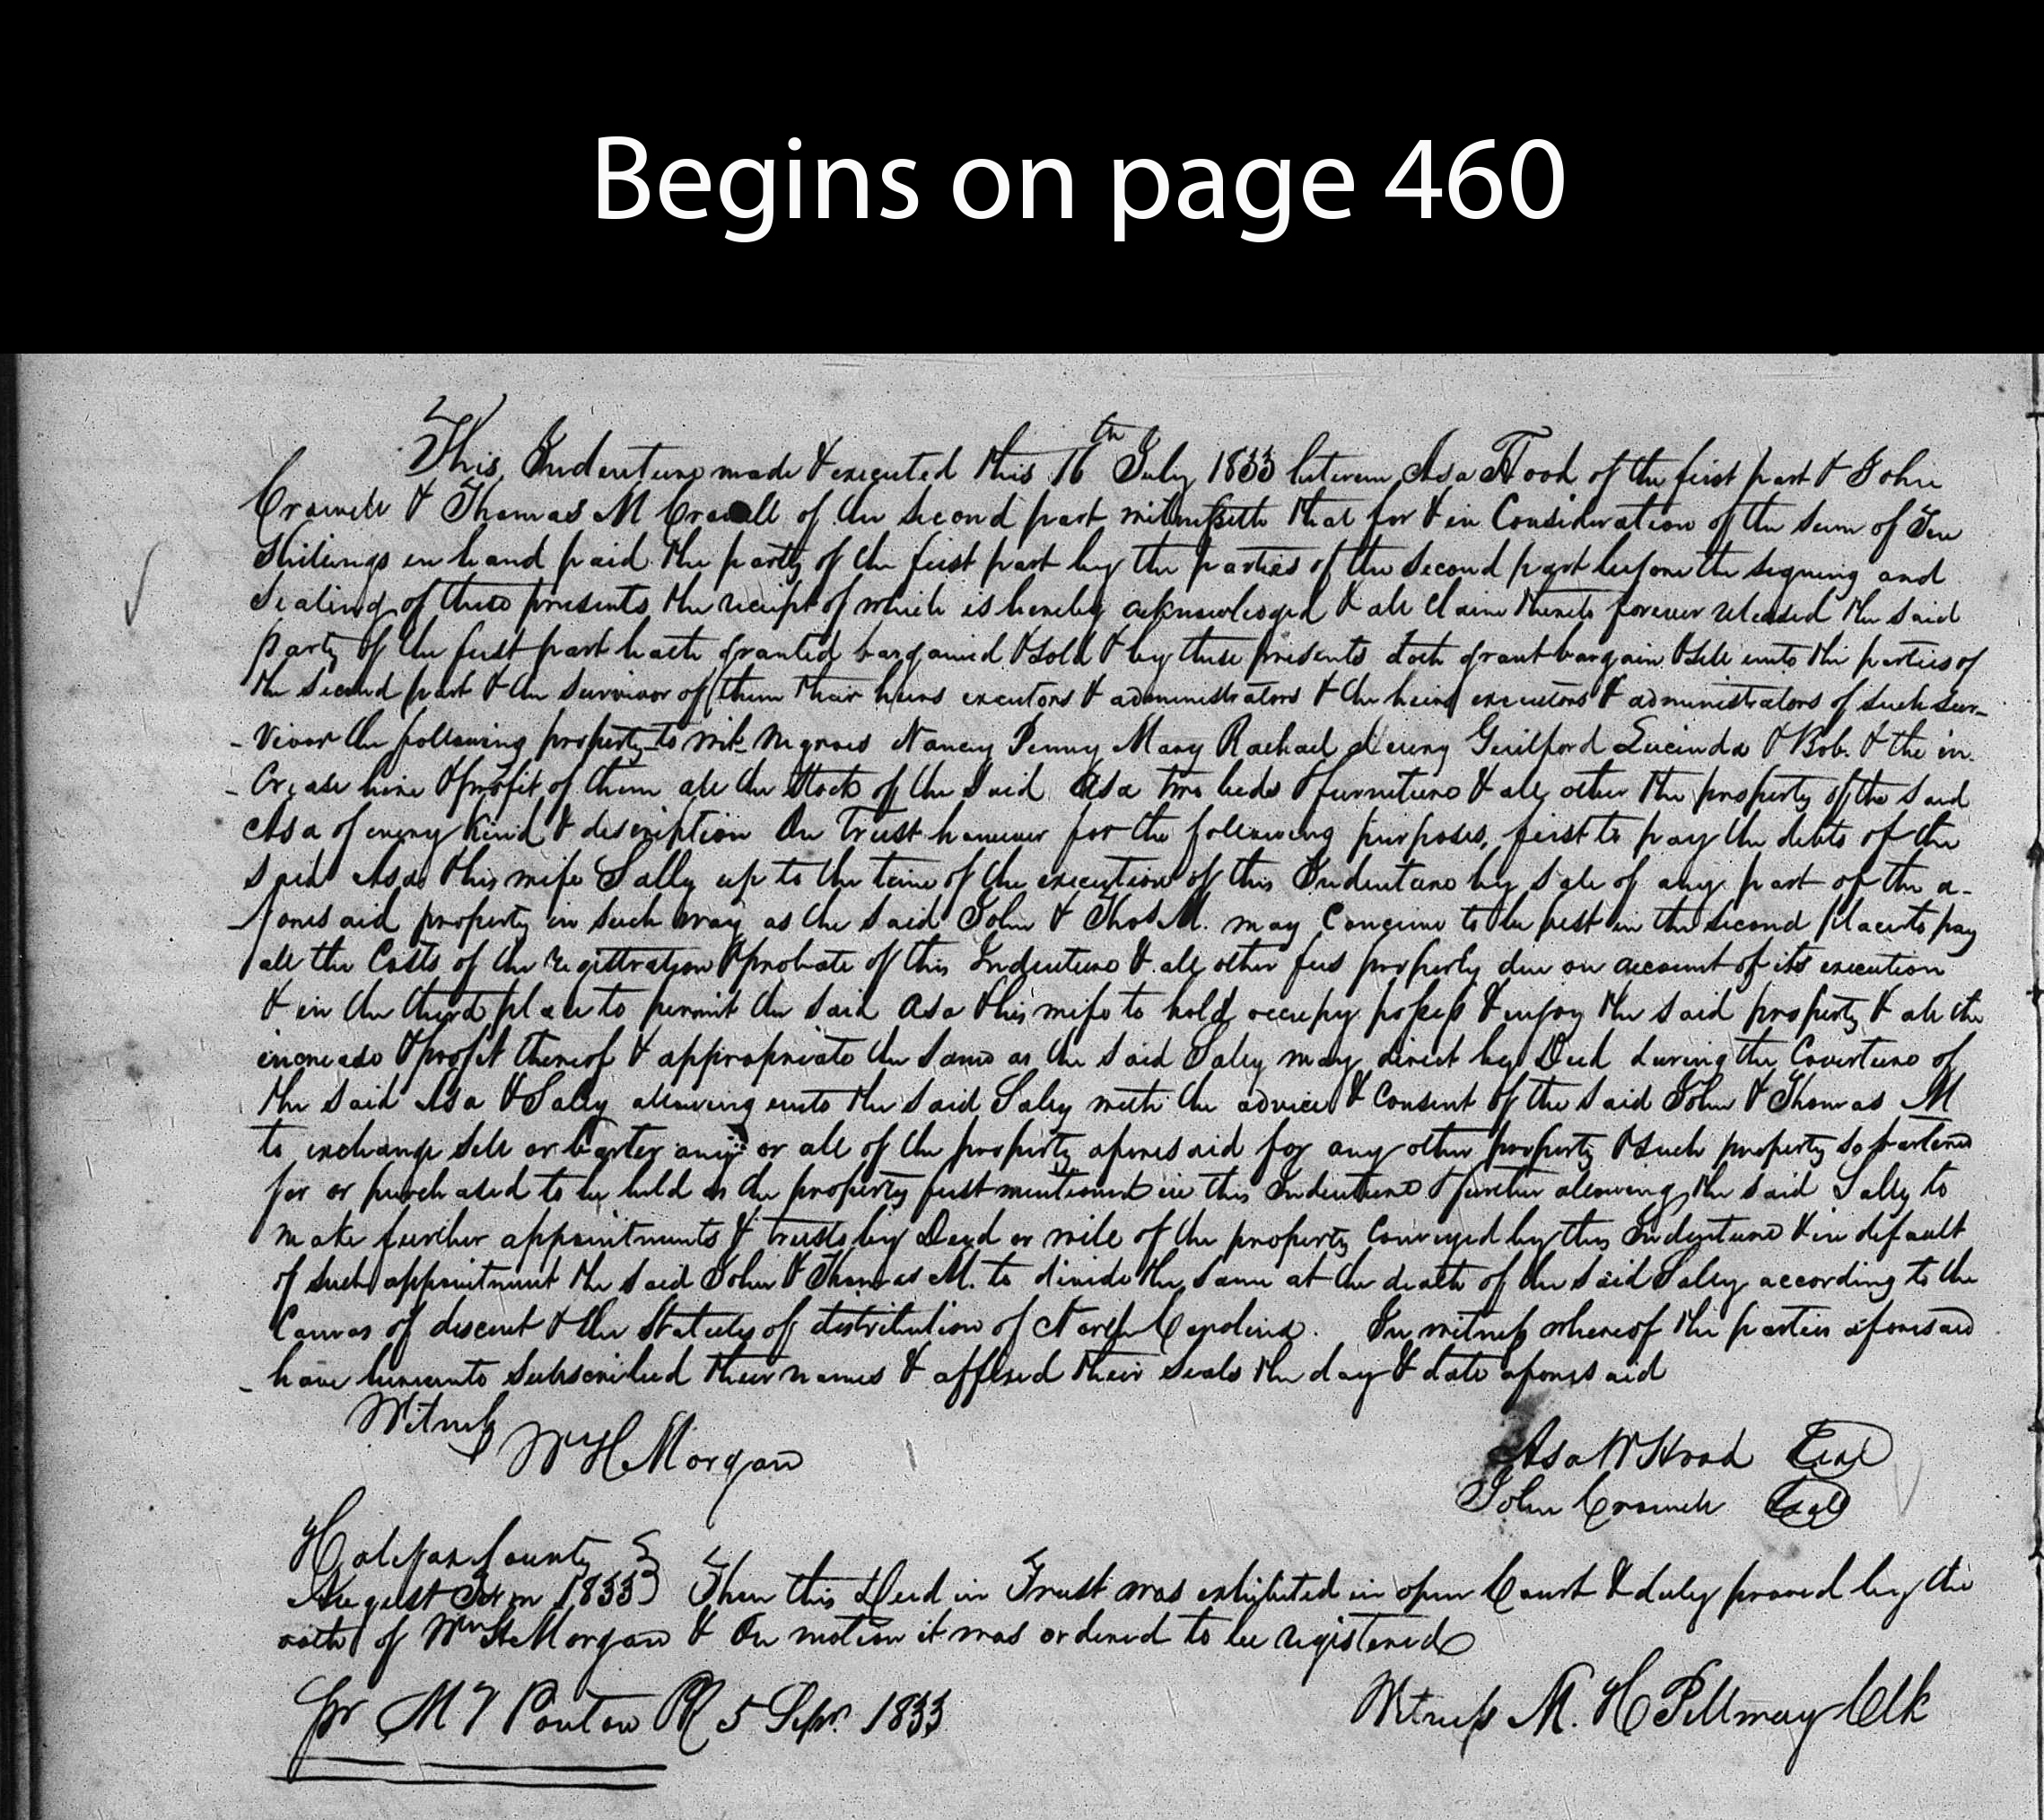 Begins on page 460
This Indenture made & executed this 16th July 1833 between Asa Hood of the first part & John
Crowell & Thomas M Crowell of the second part witnesseth that for & in Consideration of the sum of Ten
Shillings in hand paid the party of the first part by the parties of the second part before the signing and
Sealing of these presents the receipt of which is hereby acknowledged & all claim thereto forever released the said
party of the first part hath granted bargained & sold & by these presents doth grant bargain & sell unto the parties of
the second part & the survivor of them their heirs executors & administrators & the heirs executors & administrators of such sur-
- vivor the following property to wit negroes Nancy Penny Mary Rachael Guilford Lucinda & Bob. & the in-
- crease hire & profit of them all the Stock of the said Asa two beds & furniture & all other the property of the said
Asa of every kind & description In Trust however for the following purposes, first to pay the debts of the
said Asa & his wife Sally up to the time of the execution of this Indenture by sale of any part of the a-
- foresaid property in such way as the said John & Thos M. may conceive to be best in the second place to pay
all the Costs of the registration & probate of this Indenture & all other fees properly due on account of its execution
& in the third place to permit the said Asa & his wife to hold occupy possess & enjoy the said property & all the
increase & profit thereof & appropriate the same as the said Sally may direct by Deed during the Coverture of
the said Asa & Sally allowing unto the said Sally with the advice & Consent of the said John & Thomas M
to exchange sell or barter any or all of the property aforesaid for any other property & such property so bartered
for or purchased to be held as the property first mentioned in this Indenture & further allowing the said Sally to
make further appointments & trusts by Deed or will of the property Conveyed by this Indenture & in default
of such appointment the said John & Thomas M. to divide the same at the death of the said Sally according to the
Canons of descent & the Statutes of distribution of North Carolina. In witness whereof the parties aforesaid
- have hereunto subscribed their names & affixed their seals the day & date aforesaid
Witness
Wm H Morgan
Asa W Hood Seal
John Crowell Seal
Halifax County
August Term 1833 } Then this Deed in Trust was exhibited in open Court & duly proved by the
oath of Wm H Morgan & On motion it was ordered to be registered
Witness M. H Pettway Clk
pr M T Ponton PR 5 Sepr. 1833